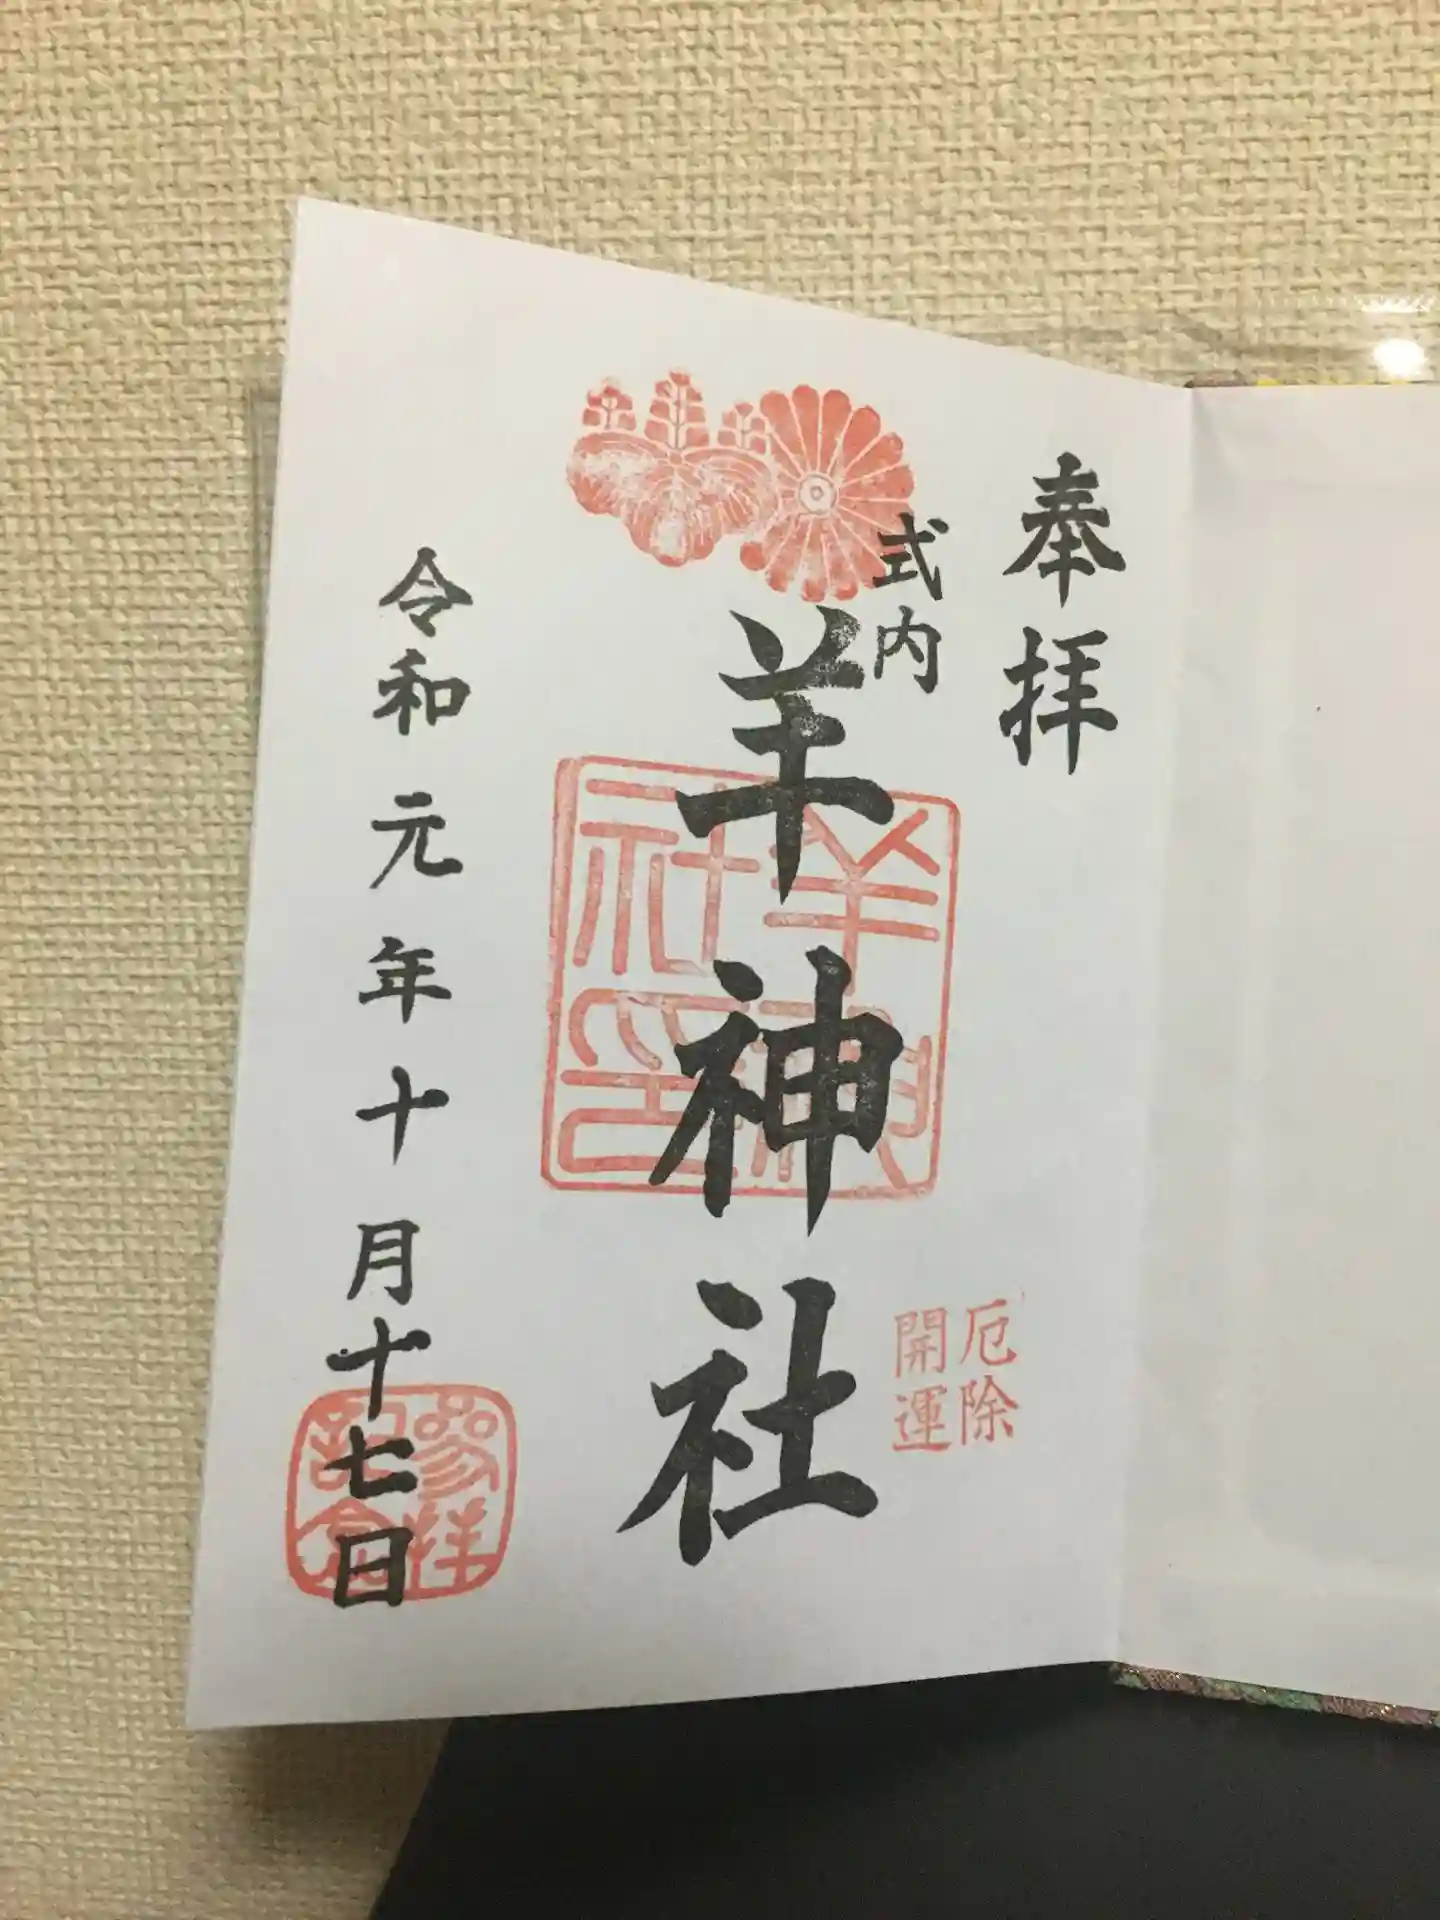 奉拝
式内
羊神社
羊神社印
厄除
開運
令和元年十月十七日
参拝
記念